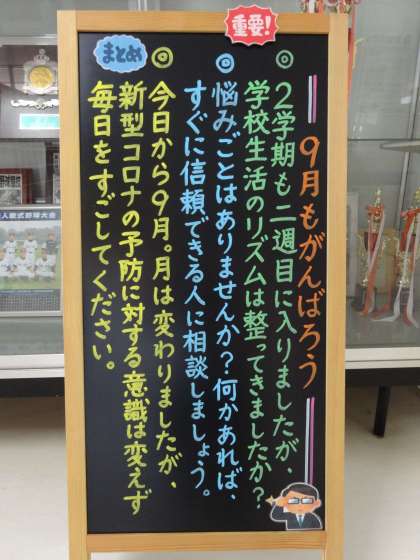 重要!
９月もがんばろう
◎２学期も二週目に入りましたが、
学校生活のリズムは整ってきましたか？
◎悩みごとはありませんか？何かあれば、
すぐに信頼できる人に相談しましょう。
まとめ
◎今日から９月。月は変わりましたが、
新型コロナの予防に対する意識は変えず
毎日をすごしてください。